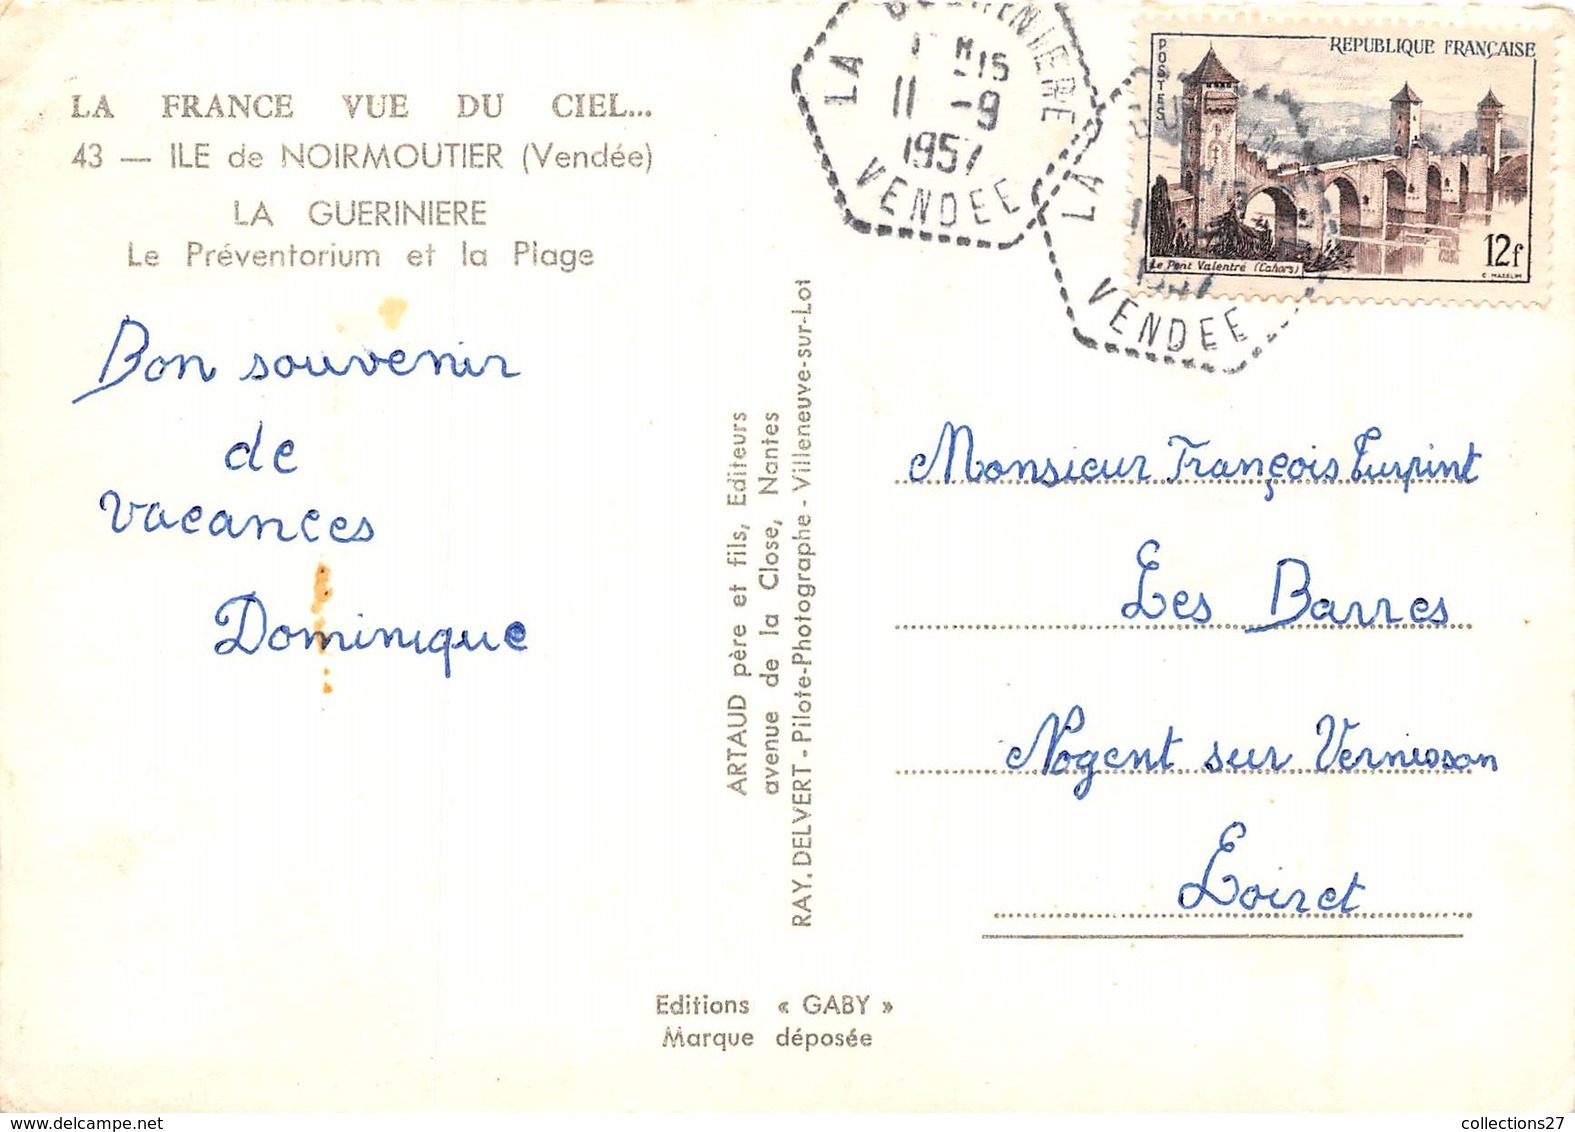 LA FRANCE VUE DU CIEL...
43 — ILE de NOIRMOUTIER (Vendée)
LA GUERINIERE
Le Préventorium et la Plage
Bon souvenir
de
vacances
Dominique
ARTAUD père et fils, Editeurs
avenue de la Close, Nantes
RAY. DELVERT - Pilote-Photographe - Villeneuve-sur-Lot
LA GUERINIERE
15
11 -9
1957
VENDEE
POSTES
REPUBLIQUE FRANÇAISE
Le Pont Valentré (Cahors)
12f
C. MAZELIN
LA
VENDEE
Monsieur François Turpint
Les Barres
Nogent sur Vernisson
Loiret
Editions « GABY »
Marque déposée
collections27